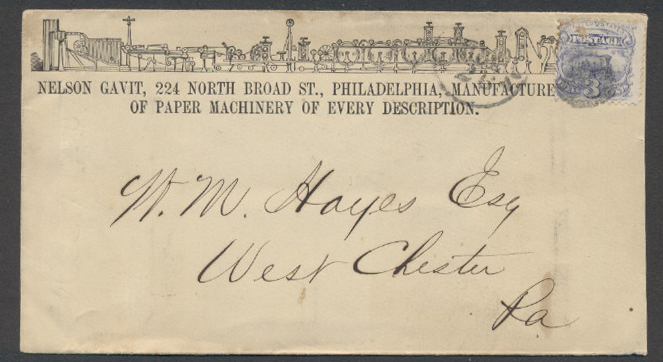 POSTAGE
3
NELSON GAVIT, 224 NORTH BROAD ST., PHILADELPHIA, MANUFACTURE
OF PAPER MACHINERY OF EVERY DESCRIPTION.
W. M. Hayes Esq
West Chester
Pa